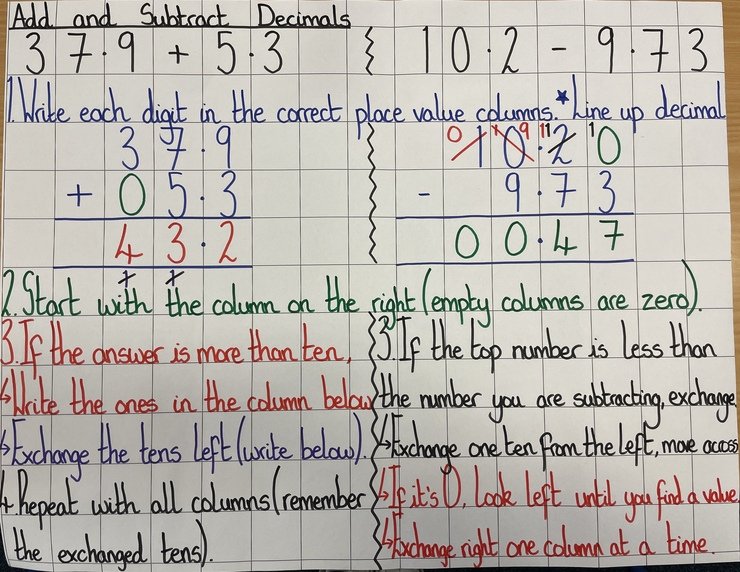 Add and Subtract Decimals
37.9 + 5.3
10.2 - 9.73
1. Write each digit in the correct place value columns. *Line up decimal
37.9
+ 05.3
43.2
0 1 9 11 1
10.20
- 9.73
00.47
2. Start with the column on the right (empty columns are zero).
3. If the answer is more than ten,
↳Write the ones in the column below
↳Exchange the tens left (write below).
4. Repeat with all columns (remember
the exchanged tens).
3. If the top number is less than
the number you are subtracting, exchange
↳Exchange one ten from the left, move across
↳If it's 0, look left until you find a value.
↳Exchange right one column at a time.